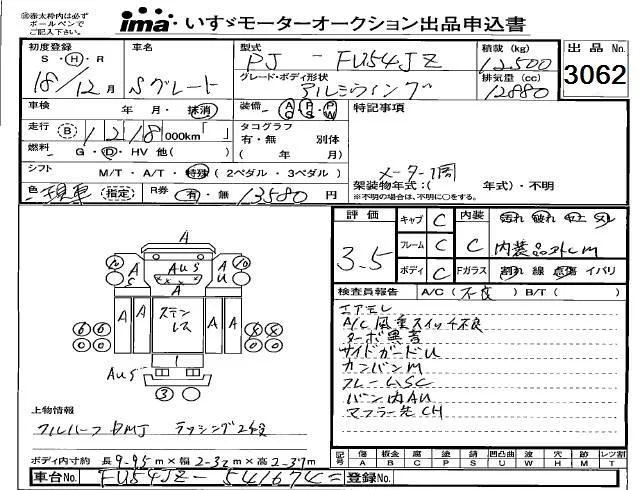 ㊟赤太枠内は必ず
ボールペンで
ご記入下さい。
ima いすゞモーターオークション出品申込書
初度登録 S・H・R 18/12月
車名 Sグレート
型式 PJ - FU54JZ
グレード・ボディ形状 アルミウィング
積載(kg) 12500
排気量(cc) 12880
出品No. 3062
車検 年・月・抹消
装備 AC PS PW
特記事項
走行 B 1218 000km「 」
タコグラフ 有・無 別体
( 年 月)
燃料 G・D・HV 他( )
シフト M/T・A/T・特殊(2ペダル・3ペダル)
メーター1周
架装物年式:( 年式)・不明
※不明の場合は、不明に○をする。
色 現車 (指定) R券 有・無 13580円
評価 3.5
キャブ C
フレーム C
ボディ C
内装 C
Fガラス
内装品外しM
割れ 線 点傷 イバリ
検査員報告 A/C(不良)B/T( )
エアモレ
A/C風量スイッチ不良
ターボ異音
サイドガードU
カンバンM
フレームSC
バン内AU
マフラー先CH
A
AUS
A S
A U
A
A A
ステンレス
A A
6 6
AUS
3
上物情報
フルハーフ DMJ ラッシング2段
ボディ内寸約 長9-95m×幅2-32m×高2-37m
記号 傷A 板金B 腐C 凹P 錆S 凹凸曲U 波W 穴H 跡M レツ割T
車台No. FU54JZ-541674=
登録No.